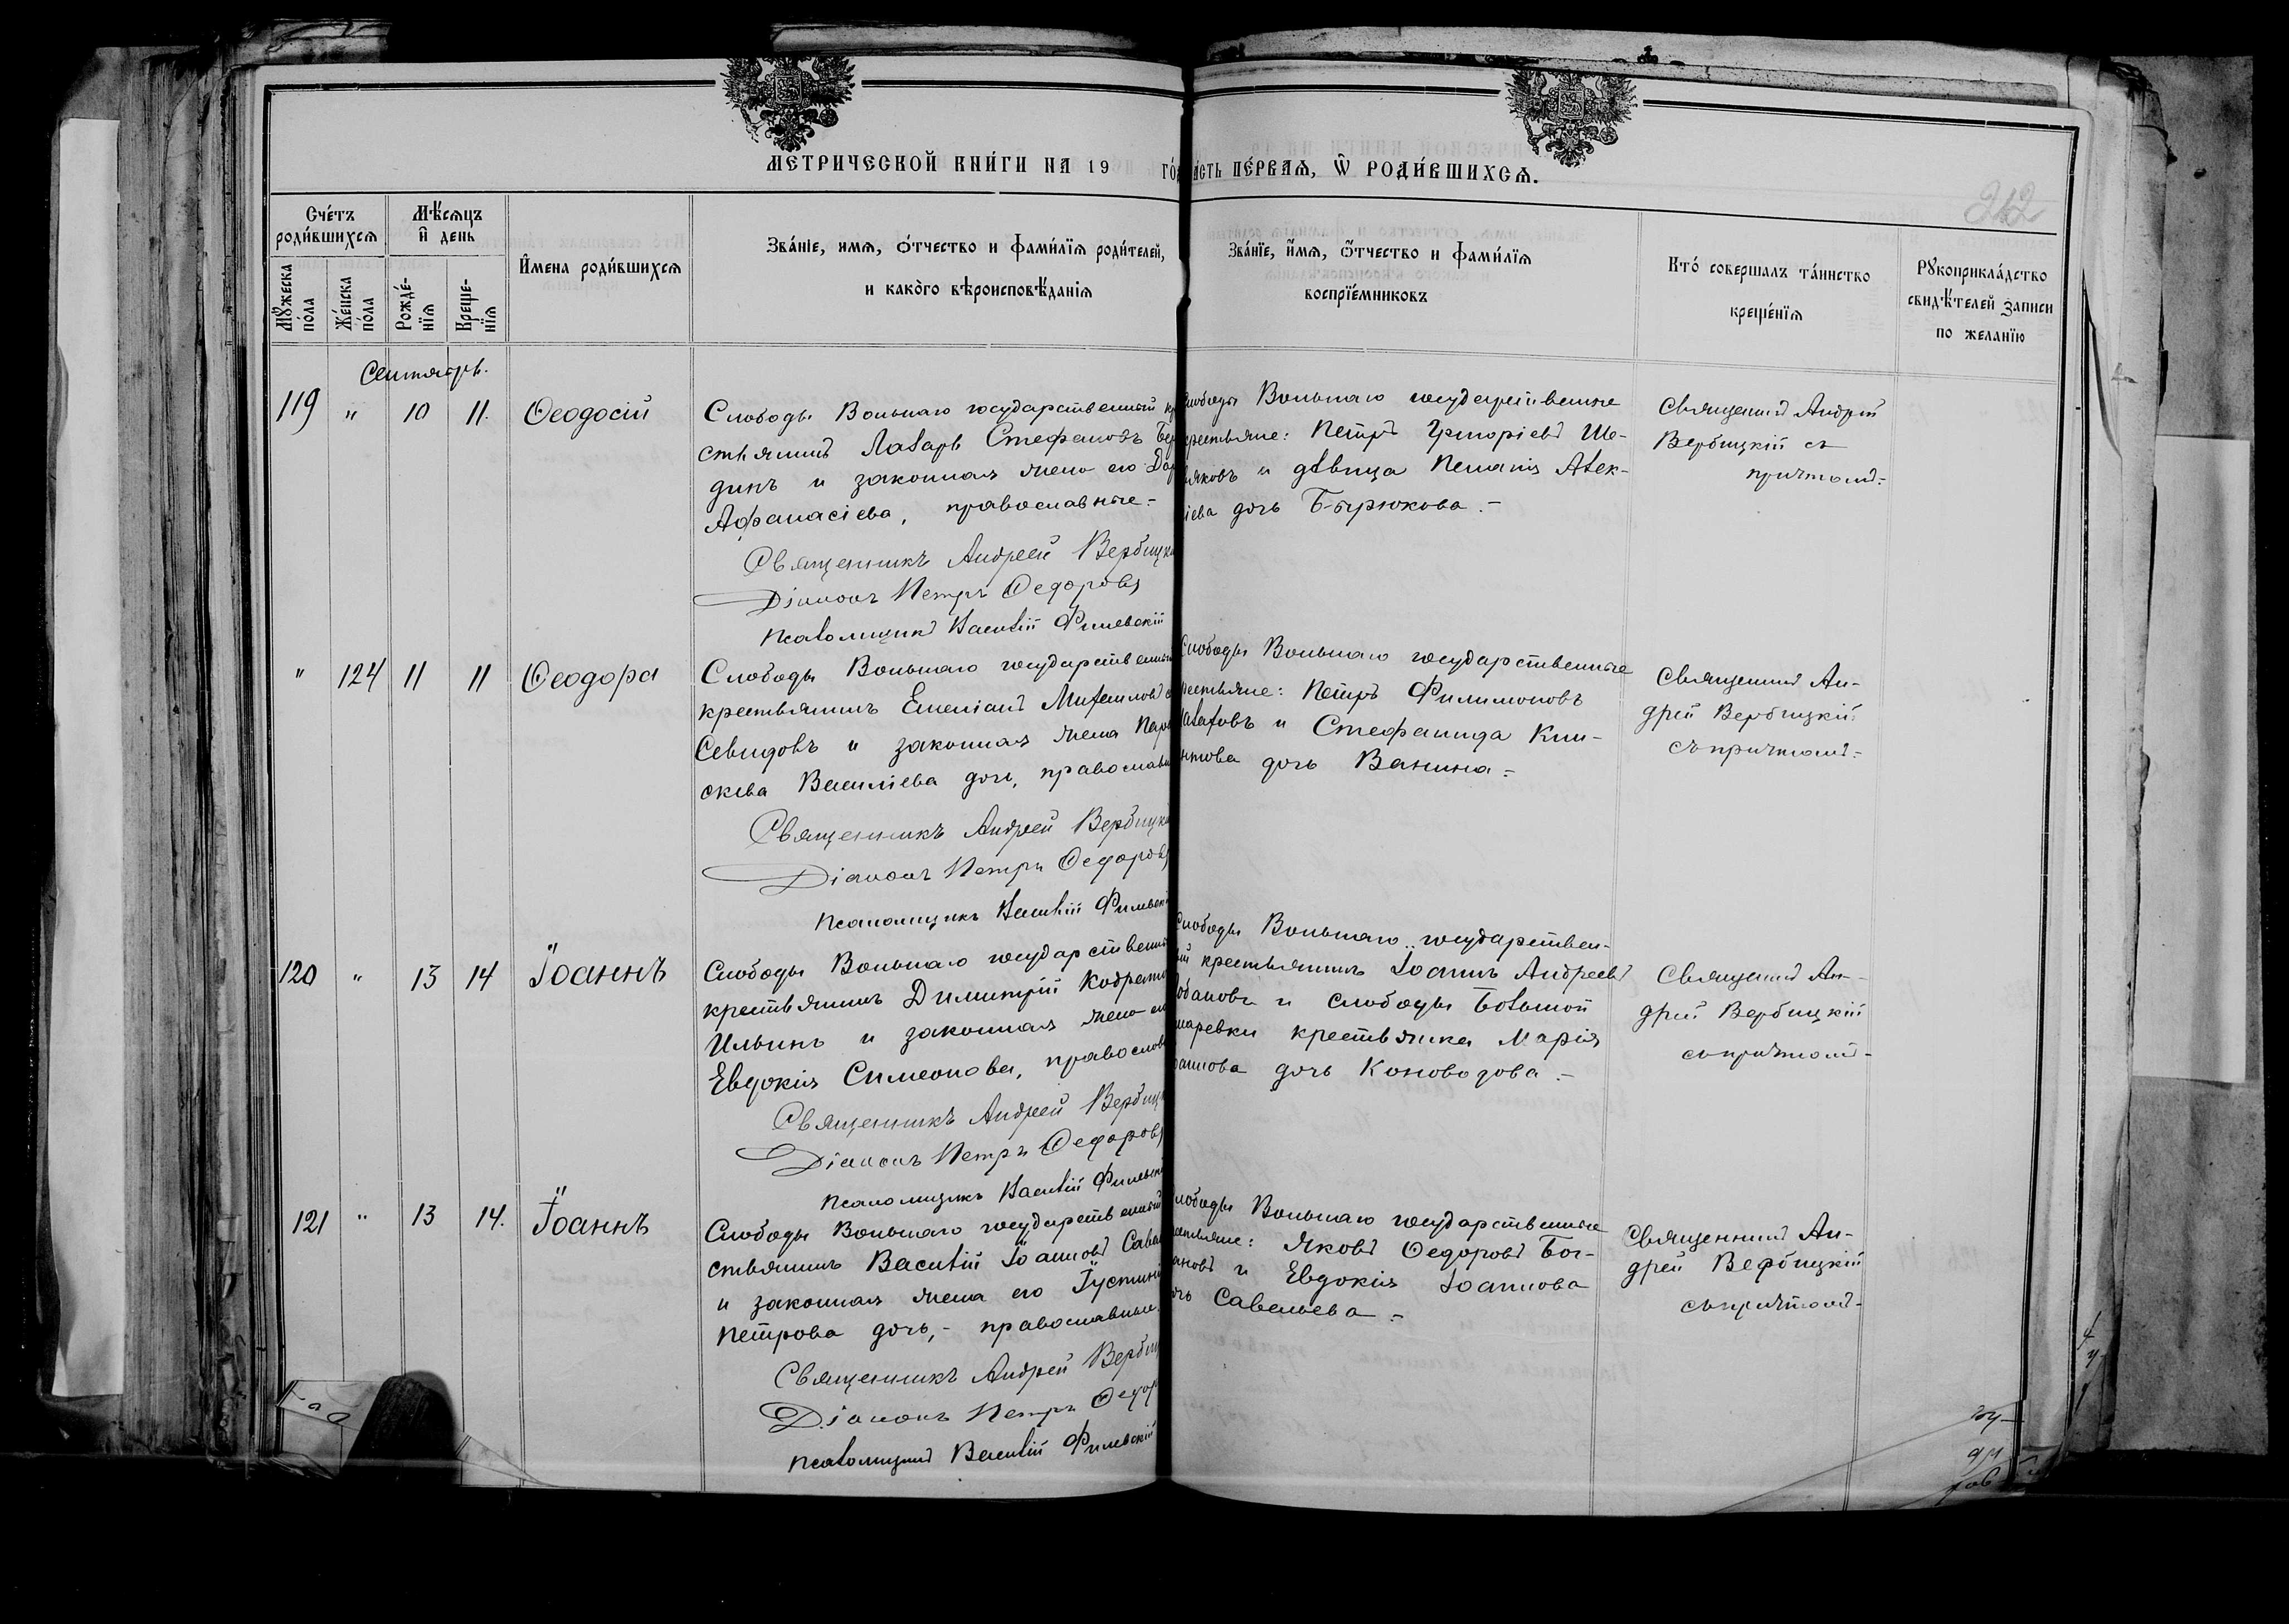 МЕТРИЧЕСКОЙ КНИ́ГИ НА 19 ГО́
ЧА́СТЬ ПЕ́РВАЯ, Ѿ РОДИ́ВШИХСЯ.
212
Сче́тъ роди́вшихся
Мѣ́сяцъ и҆ день
И҆мена роди́вшихся
Зва́нїе, имя, о́тчество и фами́лїя роди́телей,
и како́го вѣроисповѣ́данїя
Зва́нїе, и҆́мя, ѻ҆́тчество и фами́лїя
воспрїе́мниковъ
Кто́ совершалъ та́инство
креще́нїя
Рꙋкоприкла́дство
свидѣ́телей записи
по желанїю
Мꙋжеска по́ла
Же́нска по́ла
Рожде́-нїя
Креще-нїя
Сентябрь.
119 " 10 11. Ѳеодосій
Слободы Вольнаго государственный кр
стьянинъ Лазарь Стефановъ Бер
динъ и законная жена его Дар
Афанасіева, православные.=
Священникъ Андрей Вербицкі
Діаконъ Петръ Ѳедоровъ
Псаломщикъ Василій Филевскій
Слободы Вольнаго государственные
крестьяне: Петръ Григоріевъ Ше-
ляковъ и дѣвица Пелагія Алек-
сіева дочь Бирюкова.=
Священникъ Андрей
Вербицкій съ
причтомъ.=
" 124 11 11 Ѳеодора
Слободы Вольнаго государственный
крестьянинъ Емеліанъ Михаиловъ
Севидовъ и законная жена Пара
скева Василіева дочь, православн
Священникъ Андрей Вербицкі
Діаконъ Петръ Ѳедоровъ
Псаломщикъ Василій Филевскі
Слободы Вольнаго государственные
крестьяне: Петръ Филимоновъ
и Стефанида Кли-
ентова дочь Ванина.=
Священникъ Ан-
дрей Вербицкій
съ причтомъ.=
120 " 13 14 Іоаннъ
Слободы Вольнаго государственный
крестьянинъ Димитрій Кодрато
Ильинъ и законная жена ег
Евдокія Симеонова, православ
Священникъ Андрей Вербиц
Діаконъ Петръ Ѳедоровъ
Псаломщикъ Василій Филевскі
Слободы Вольнаго государствен-
ный крестьянинъ Іоаннъ Андреевъ
Лобановъ и слободы Большой
маревки крестьянка Марія
Іоаннова дочь Коноводова.=
Священникъ Ан-
дрей Вербицкій
съ причтомъ.=
121 " 13 14. Іоаннъ
Слободы Вольнаго государственный
стьянинъ Василій Іоанновъ Савел
и законная жена его Іустинія
Петрова дочь,- православные.
Священникъ Андрей Вербиц
Діаконъ Петръ Ѳедор
Псаломщикъ Василій Филевскій
Слободы Вольнаго государственные
крестьяне: Яковъ Ѳедоровъ Бог-
дановъ и Евдокія Іоаннова
дочь Савельева.=
Священникъ Ан-
дрей Вербицкій
съ причтомъ.=